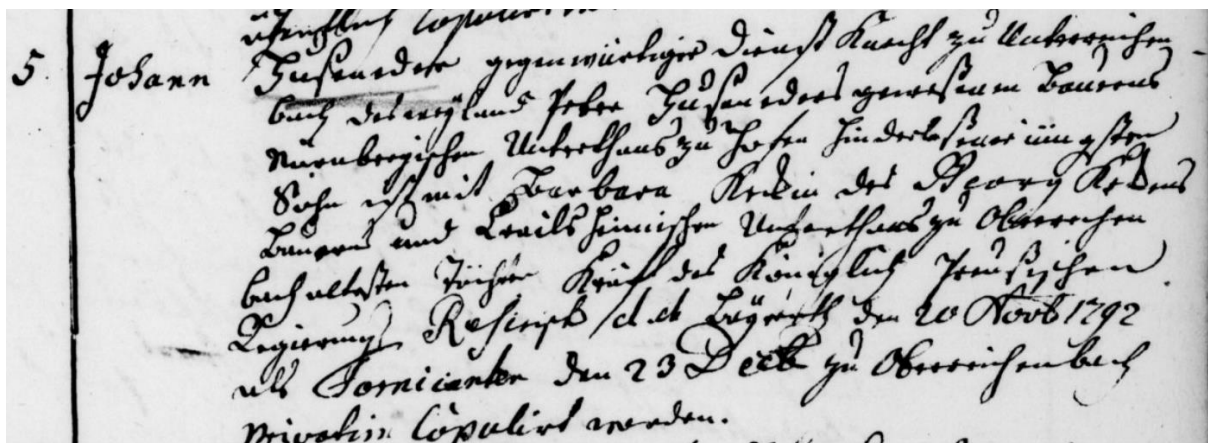 öffentlich Copulirt
5. Johann Huseneder gegenwärtiger Dienst Knecht zu Unterreichen-
bach des weyland Peter Huseneders gewesenen Bauerns
Nürnbergischen Unterthans zu Hofen hinderlasener jüngster
Sohn ist mit Barbara Keckin des Georg Keckens
Bauern und Crailsheimischen Unterthans zu Oberreichen
bach ältesten Tochter Kraft des Königlich Preusischen
Regierungs Rescript d. d. Bayreuth den 20 Novb 1792
als Fornicanten den 23 Decb zu Oberreichenbach
privatim Copulirt worden.